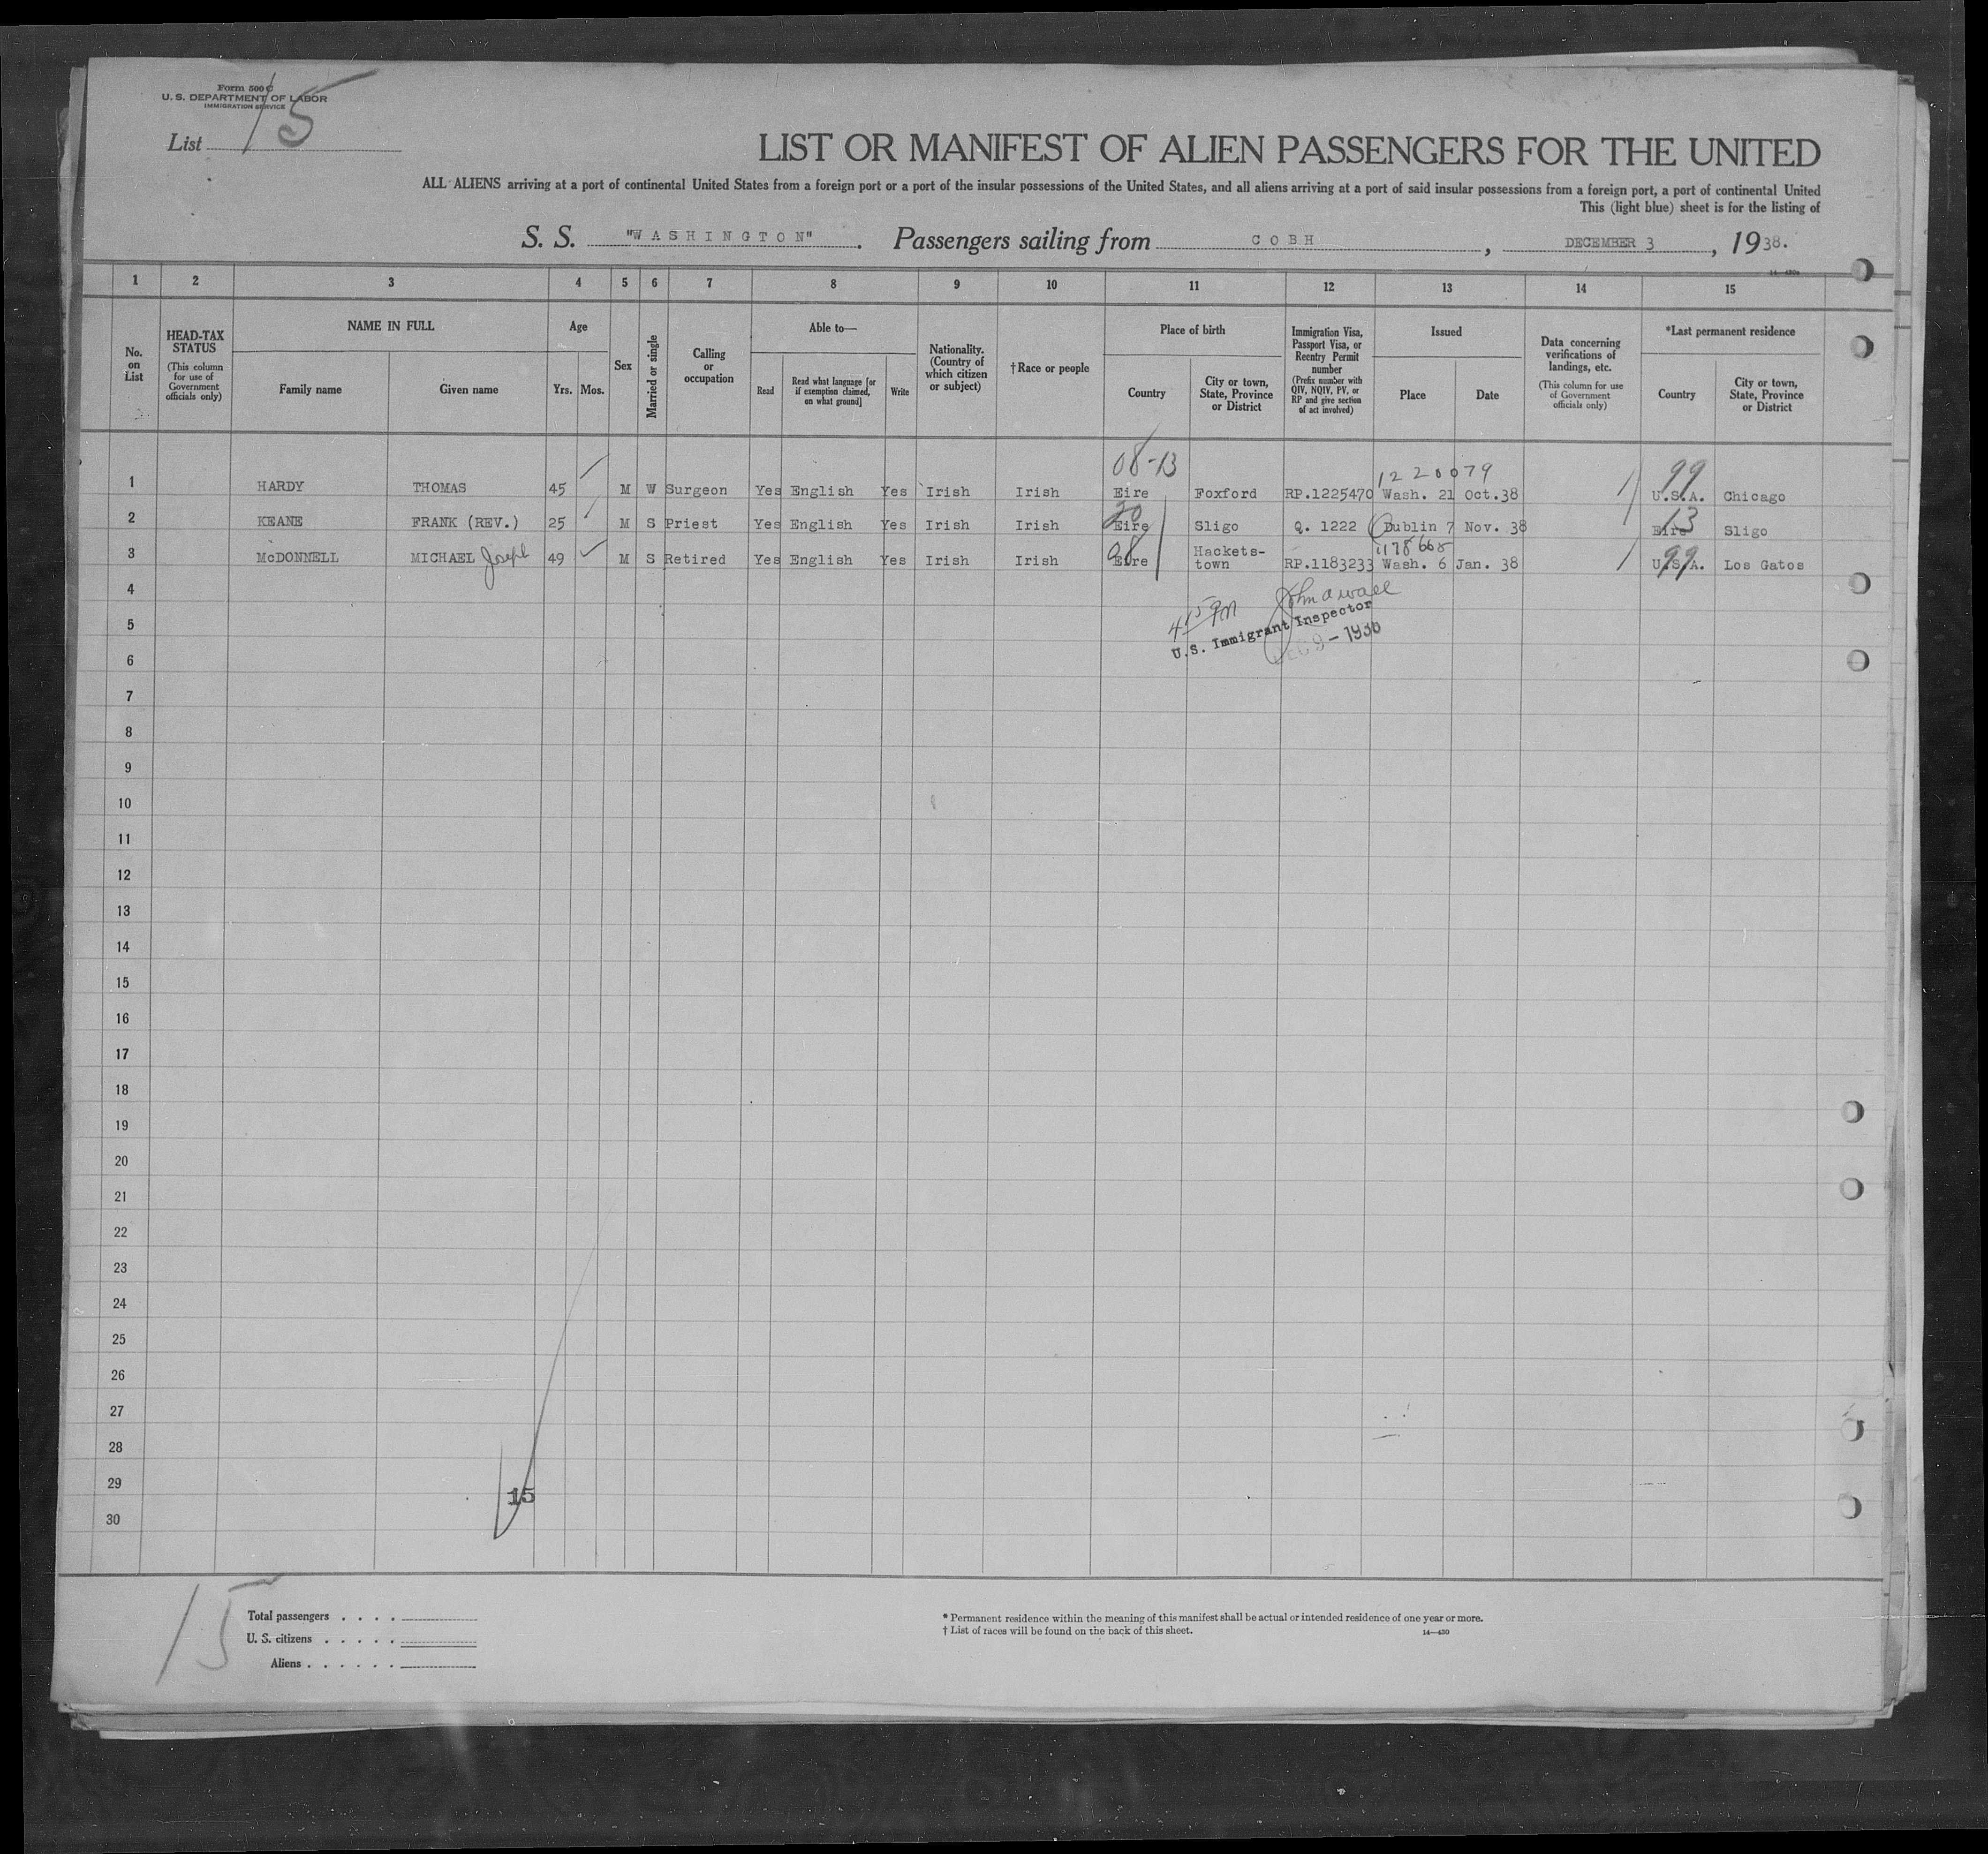 Form 500 C
U. S. DEPARTMENT OF LABOR
IMMIGRATION SERVICE
List 15
LIST OR MANIFEST OF ALIEN PASSENGERS FOR THE UNITED
ALL ALIENS arriving at a port of continental United States from a foreign port or a port of the insular possessions of the United States, and all aliens arriving at a port of said insular possessions from a foreign port, a port of continental United
This (light blue) sheet is for the listing of
S. S. "WASHINGTON". Passengers sailing from COBH, DECEMBER 3, 1938.
1 2 3 4 5 6 7 8 9 10 11 12 13 14 15
No. on List
HEAD-TAX STATUS
(This column for use of Government officials only)
NAME IN FULL
Family name
Given name
Age
Yrs. Mos.
Sex
Married or single
Calling or occupation
Able to—
Read
Read what language [or if exemption claimed, on what ground]
Write
Nationality. (Country of which citizen or subject)
†Race or people
Place of birth
Country
City or town, State, Province or District
Immigration Visa, Passport Visa, or Reentry Permit number
(Prefix number with QIV, NQIV, PV, or RP and give section of act involved)
Issued
Place
Date
Data concerning verifications of landings, etc.
(This column for use of Government officials only)
*Last permanent residence
Country
City or town, State, Province or District
08-13
1220079
99
1 HARDY THOMAS 45 M W Surgeon Yes English Yes Irish Irish Eire Foxford RP.1225470 Wash. 21 Oct.38 U.S.A. Chicago
20
13
2 KEANE FRANK (REV.) 25 M S Priest Yes English Yes Irish Irish Eire Sligo Q. 1222 Dublin 7 Nov. 38 Eire Sligo
08
1178668
99
3 McDONNELL MICHAEL Joseph 49 M S Retired Yes English Yes Irish Irish Eire Hackets-town RP.1183233 Wash. 6 Jan. 38 U.S.A. Los Gatos
4
5
415 PM
U.S. Immigrant Inspector
6
7
8
9
10
11
12
13
14
15
16
17
18
19
20
21
22
23
24
25
26
27
28
29
15
30
15
Total passengers . . . .
U. S. citizens . . . . .
Aliens . . . . . .
* Permanent residence within the meaning of this manifest shall be actual or intended residence of one year or more.
† List of races will be found on the back of this sheet.
14—430